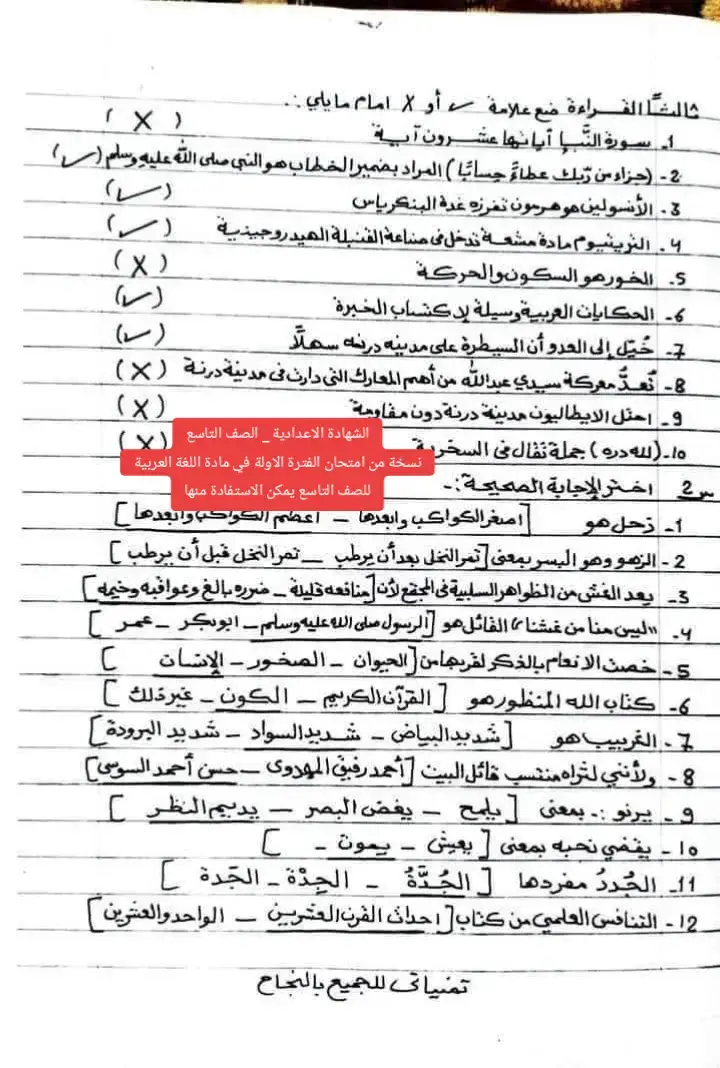 ثالثًا القراءة ضع علامة ✓ أو X امام مايلي :.
1- سورة النَّبإ آياتها عشرون آية ( X )
2- (جزاء من رّبك عطاءً حسابًا) المراد بضمير الخطاب هو النبي صلى الله عليه وسلم (✓)
3- الأنسولين هو هرمون تفرزه غدة البنكرياس (✓)
4- التريتيوم مادة مشعة تدخل في صناعة القنبلة الهيدروجينية (✓)
5- الخور هو السكون والحركة (X)
6- الحكايات العربية وسيلة لاكتساب الخبرة (✓)
7- خُيّل إلى العدو أن السيطرة على مدينه درنه سهلًا (✓)
8- تُعدُّ معركة سيدي عبدالله من أهم المعارك التي دارت في مدينة درنة (X)
9- احتل الايطاليون مدينة درنة دون مقاومة (X)
10- (لله دره) جملة تقال في السخرية (X)
الشهادة الاعدادية _ الصف التاسع
نسخة من امتحان الفترة الاولة في مادة اللغة العربية
للصف التاسع يمكن الاستفادة منها
س2 اختر الإجابة الصحيحة :-
1- زحل هو [اصغر الكواكب وابعدها – أعظم الكواكب وأبعدها]
2- الزهو وهو البسر بمعنى [تمر النخل بعد أن يرطب – تمر النخل قبل أن يرطب]
3- يعد الغش من الظواهر السلبية في المجتمع لأن [منافعه قليلة – ضرره بالغ وعواقبه وخيمه]
4- "ليس منا من غشنا" القائل هو [الرسول صلى الله عليه وسلم – ابوبكر – عمر]
5- خصت الانعام بالذكر لقربها من [الحيوان – الصخور – الإنسان]
6- كتاب الله المنظور هو [القرآن الكريم – الكون – غير ذلك]
7- الغربيب هو [شديد البياض – شديد السواد – شديد البرودة]
8- ولأنني لثراه منتسب قائل البيت [أحمد رفيق المهدوى – حسن أحمد السوسي]
9- يرنو :- بمعنى [يلمح – يغض البصر – يديم النظر]
10- يقضي نحبه بمعنى [يعيش – يموت – ]
11- الجُددُ مفردها [الجُدَّةُ – الجِدْة – الجَدة]
12- التنافس العلمي من كتاب [احداث القرن العشرين – الواحد والعشرين]
تمنياتى للجميع بالنجاح